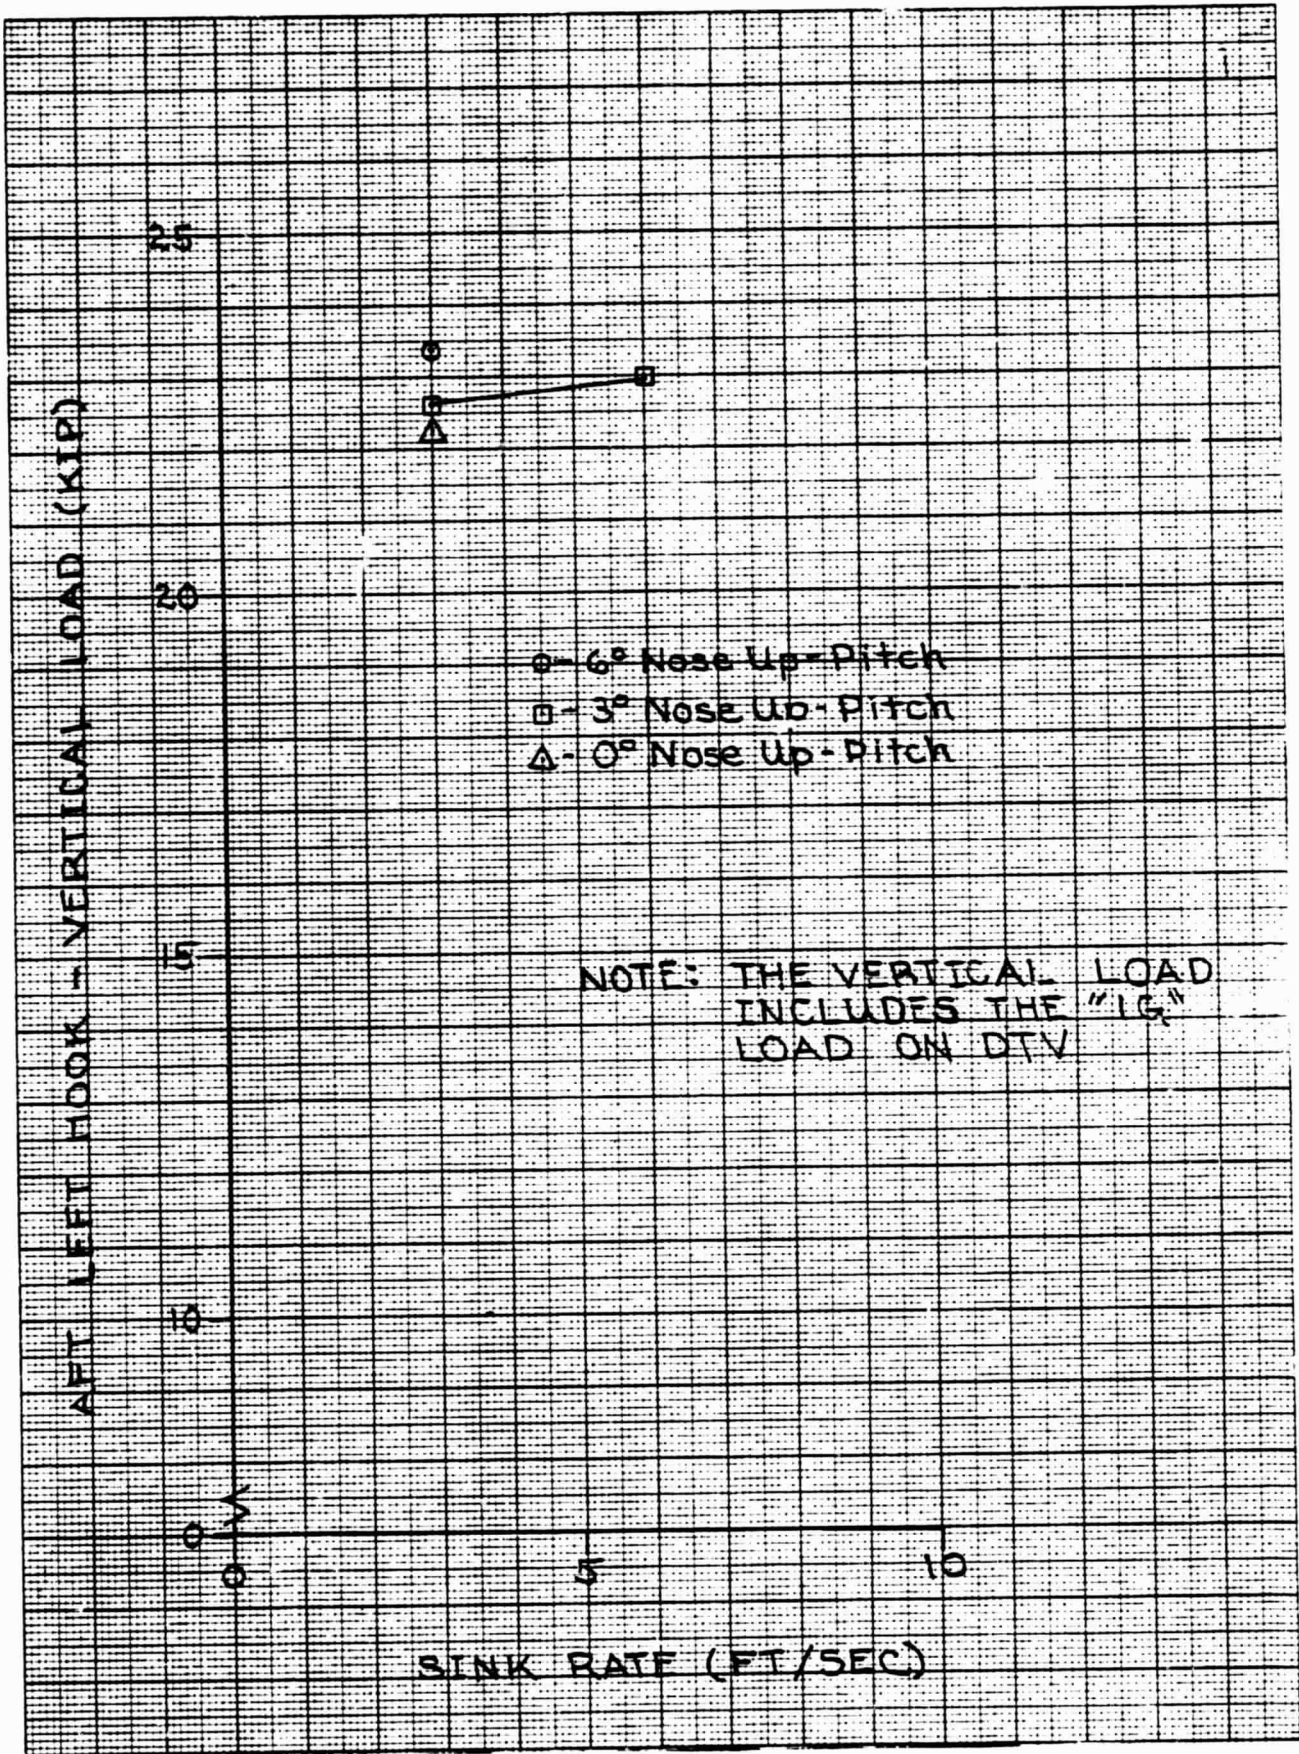 AFT LEFT HOOK - VERTICAL LOAD (KIP)
25
20
15
10
0
o- 6° Nose Up-Pitch
□- 3° Nose Up-Pitch
△- 0° Nose Up-Pitch
NOTE: THE VERTICAL LOAD
INCLUDES THE "1G"
LOAD ON DTV
0 5 10
SINK RATE (FT/SEC)